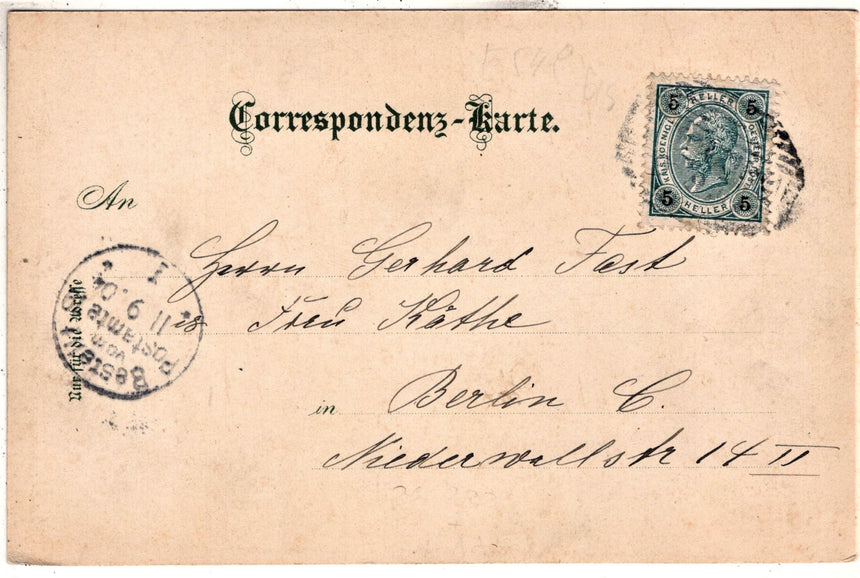 Correspondenz-Karte.
5 HELLER 5
KAIS. KOENIGL.
5 HELLER 5
An
Herrn Gerhard Fast
Frau Käthe
in Berlin C.
Niederwallstr 14 II
Nur für die Adresse
Bestellt
vom
Postamte
11 9.04
I